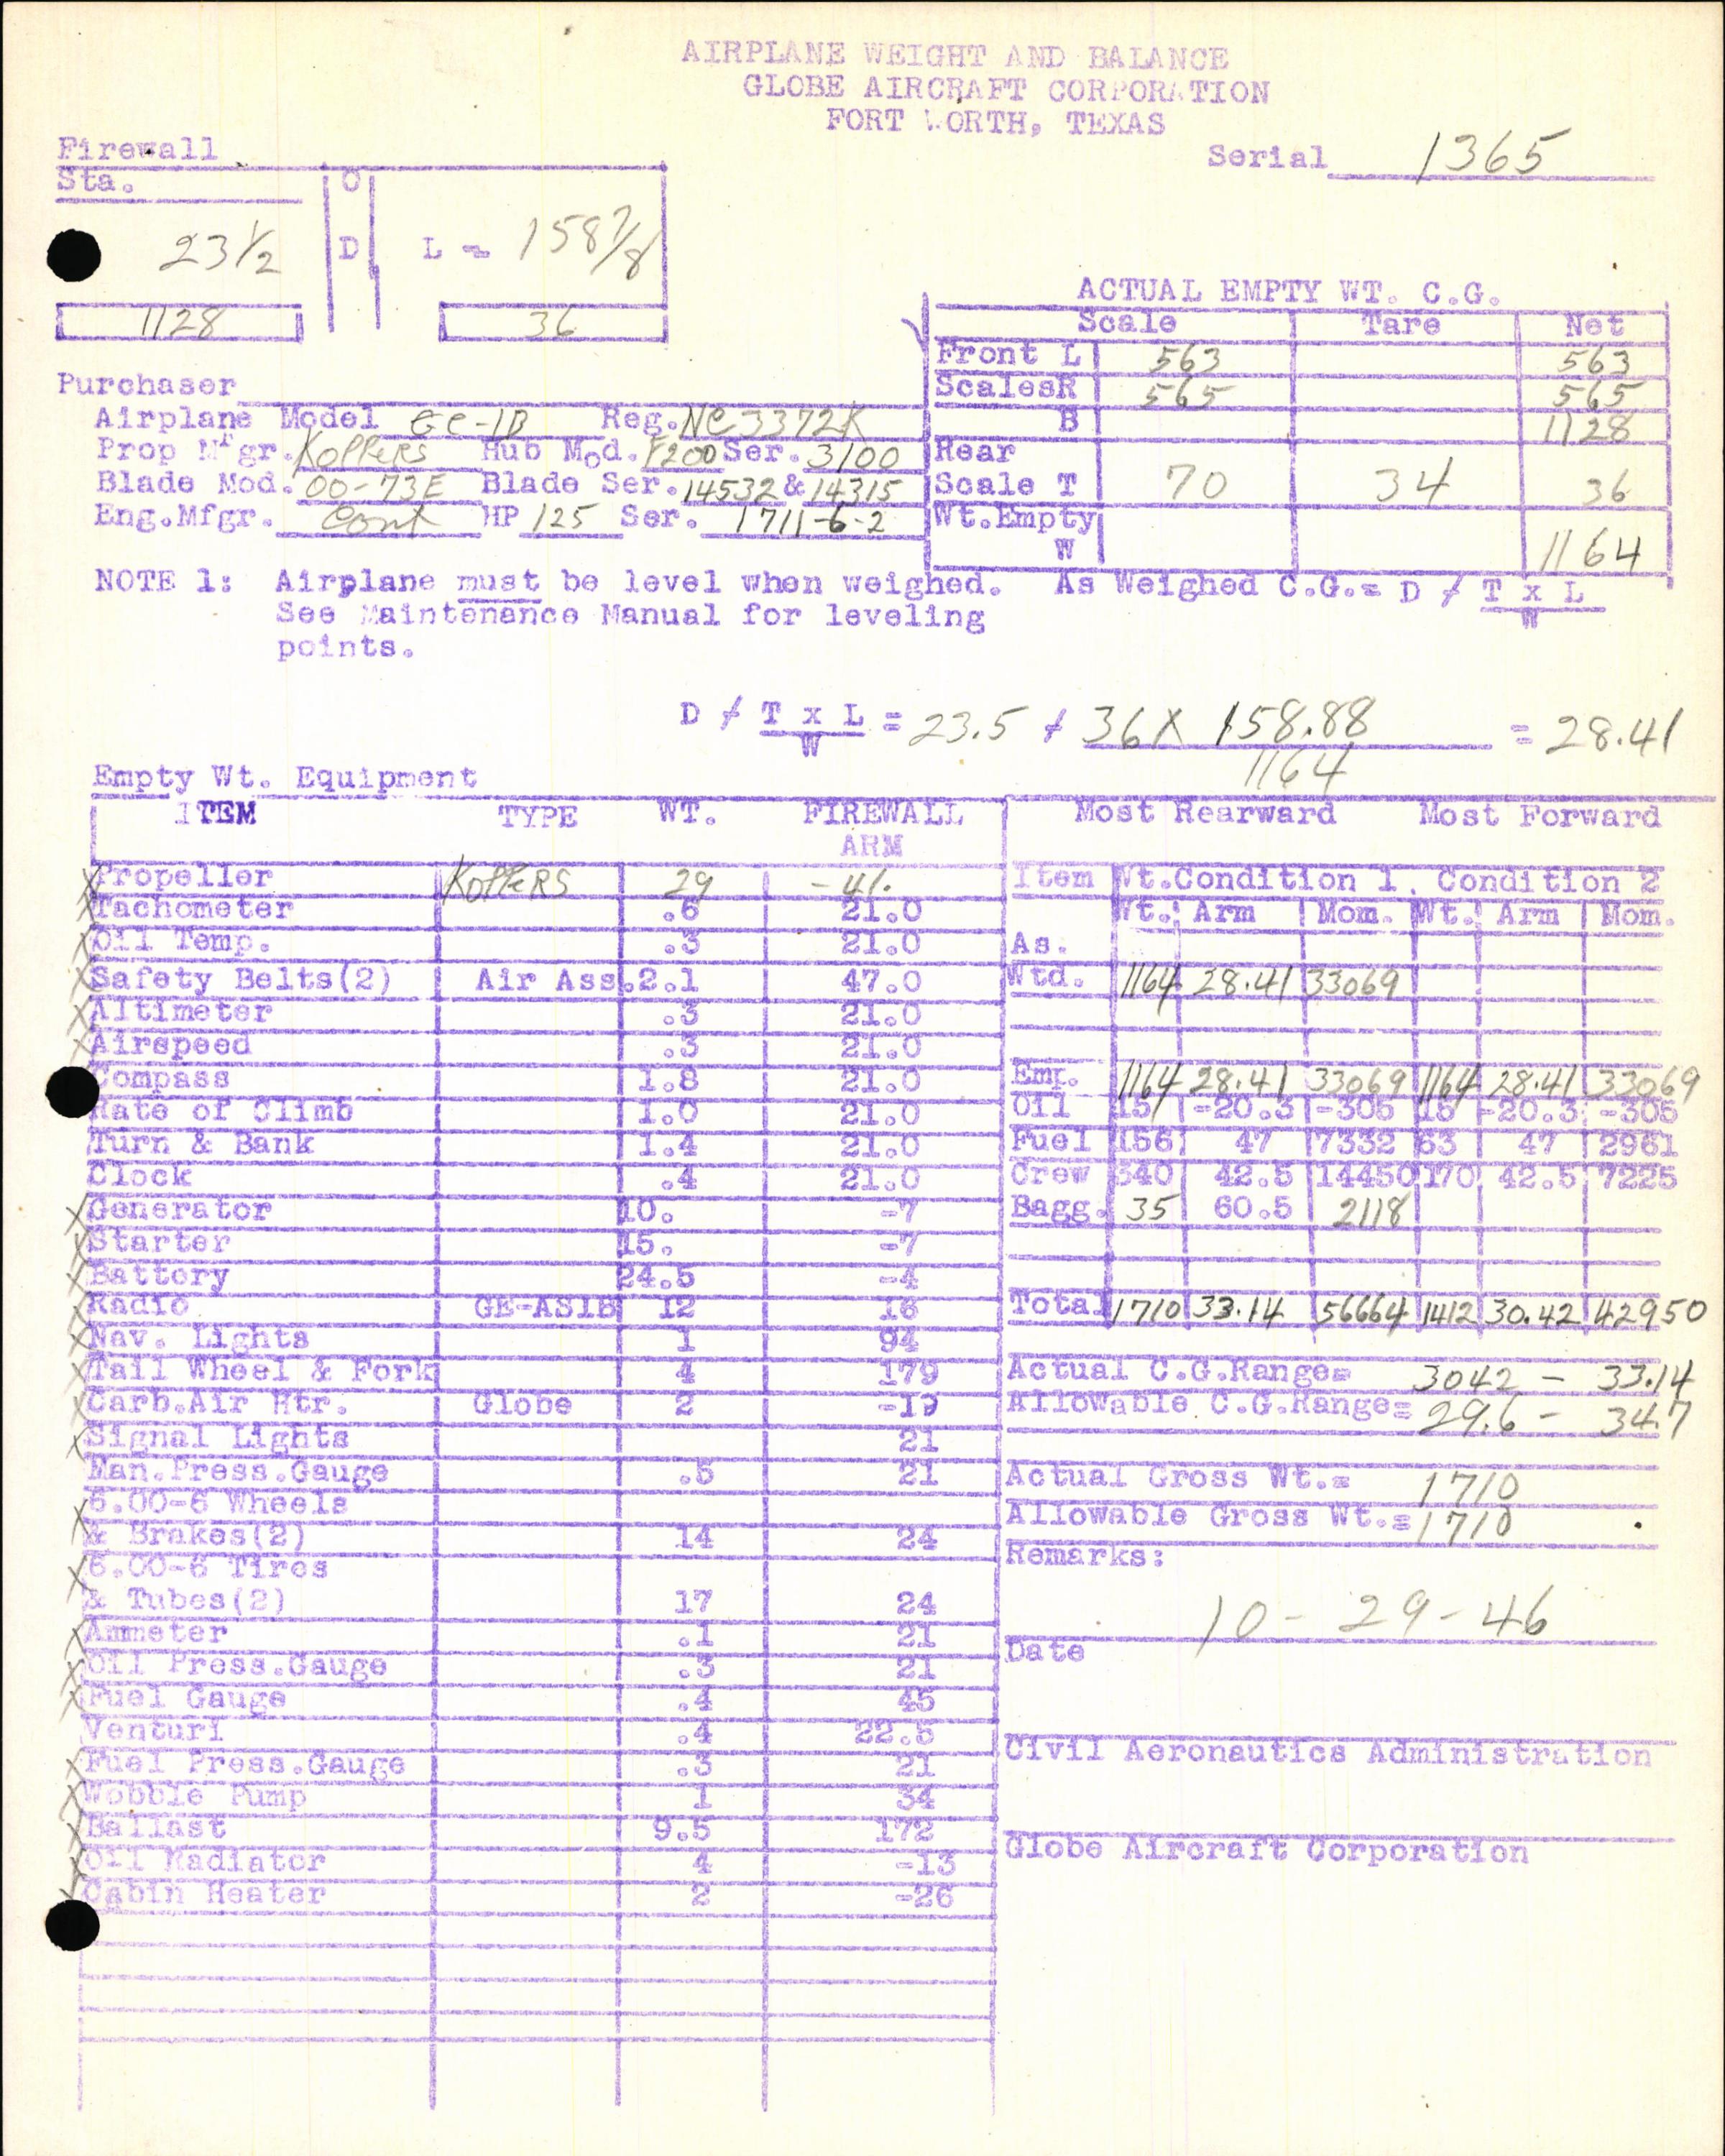 AIRPLANE WEIGHT AND BALANCE
GLOBE AIRCRAFT CORPORATION
FORT WORTH, TEXAS
Serial 1365
Firewall
Sta. C
23 1/2 D L = 158 7/8
1128 36
ACTUAL EMPTY WT. C.G.
Scale Tare Net
Front L 563 563
Scales R 565 565
B 1128
Rear
Scale T 70 34 36
Wt. Empty
W 1164
Purchaser
Airplane Model GC-1B Reg. NC 3372K
Prop Mfgr. KOPPERS Hub Mod. F200 Ser. 3100
Blade Mod. 00-73E Blade Ser. 14532 & 14315
Eng. Mfgr. Cont HP 125 Ser. 1711-6-2
NOTE 1: Airplane must be level when weighed.
See Maintenance Manual for leveling
points.
As Weighed C.G. = D / T x L
W
D / T x L = 23.5 + 36 X 158.88 = 28.41
W 1164
Empty Wt. Equipment
ITEM TYPE WT. FIREWALL
ARM
X Propeller KOPPERS 29 -41.
X Tachometer .6 21.0
X Oil Temp. .3 21.0
X Safety Belts(2) Air Ass. 2.1 47.0
X Altimeter .3 21.0
X Airspeed .3 21.0
Compass 1.8 21.0
Rate of Climb 1.0 21.0
Turn & Bank 1.4 21.0
Clock .4 21.0
X Generator 10. -7
X Starter 15. -7
X Battery 24.5 -4
X Radio GE-AS1B 12 16
X Nav. Lights 1 94
X Tail Wheel & Fork 4 179
X Carb. Air Htr. Globe 2 -19
X Signal Lights 21
Man. Press. Gauge .5 21
X 6.00-6 Wheels
& Brakes(2) 14 24
X 6.00-6 Tires
& Tubes(2) 17 24
X Ammeter .1 21
X Oil Press. Gauge .3 21
X Fuel Gauge .4 45
Venturi .4 22.5
X Fuel Press. Gauge .3 21
X Wobble Pump 1 34
X Ballast 9.5 172
X Oil Radiator 4 -13
X Cabin Heater 2 -26
Most Rearward Most Forward
Item Wt. Condition 1. Condition 2
Wt. Arm Mom. Wt. Arm Mom.
As.
Wtd. 1164 28.41 33069
Emp. 1164 28.41 33069 1164 28.41 33069
Oil 15 -20.3 -305 15 -20.3 -305
Fuel 156 47 7332 63 47 2961
Crew 340 42.5 14450 170 42.5 7225
Bagg. 35 60.5 2118
Total 1710 33.14 56664 1412 30.42 42950
Actual C.G. Range= 3042 - 33.14
Allowable C.G. Range= 29.6 - 34.7
Actual Gross Wt.= 1710
Allowable Gross Wt.= 1710
Remarks:
10-29-46
Date
Civil Aeronautics Administration
Globe Aircraft Corporation